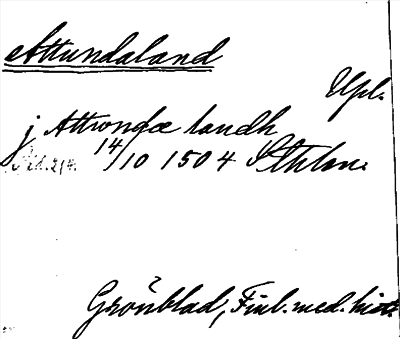 Attundaland
Upl.
j Attronda landh
14/10 1504 Sthlm.
Grönblad, Finl. med. hist.